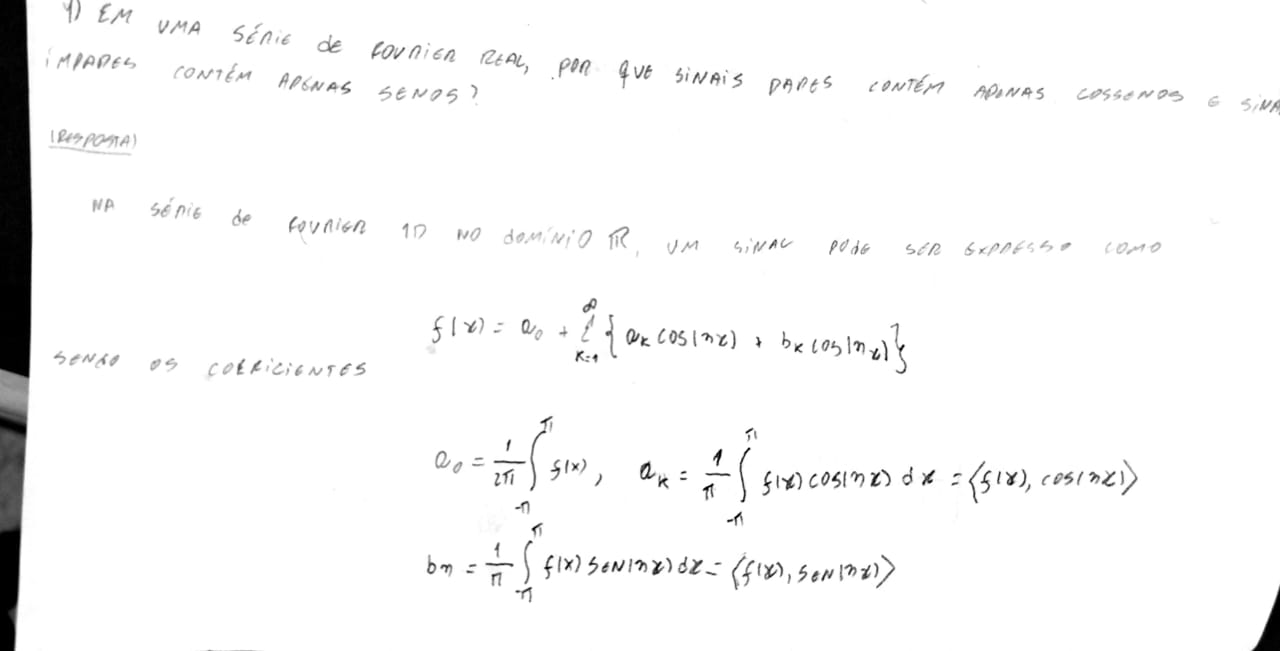 1) EM UMA SÉRIE de FOURIER REAL, POR QUE SINAIS PARES CONTÉM APENAS COSSENOS E SINA
ÍMPARES CONTÉM APENAS SENOS?
(RESPOSTA)
NA SÉRIE de FOURIER 1D NO DOMÍNIO ℝ, UM SINAL PODE SER EXPRESSO COMO
f(x) = a₀ + Σ_{K=1}^{∞} { a_K cos(nx) + b_K cos(nx) }
SENDO OS COEFICIENTES
a₀ = 1/2π ∫_{-π}^{π} f(x), a_K = 1/π ∫_{-π}^{π} f(x) cos(nx) dx = ⟨f(x), cos(nx)⟩
bn = 1/π ∫_{-π}^{π} f(x) SEN(nx) dx = ⟨f(x), SEN(nx)⟩